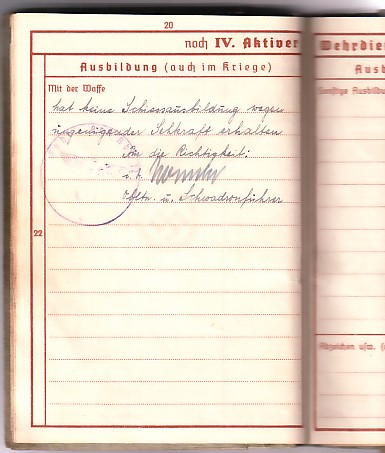 20
noch IV. Aktiver Wehrdie
Ausbildung (auch im Kriege)
Mit der Waffe
hat keine Schiessausbildung wegen
ungenügender Sehkraft erhalten
Für die Richtigkeit:
Obltn. u. Schwadronführer
22
Ausb
Sonstige Ausbildu
Abzeichen usw. (